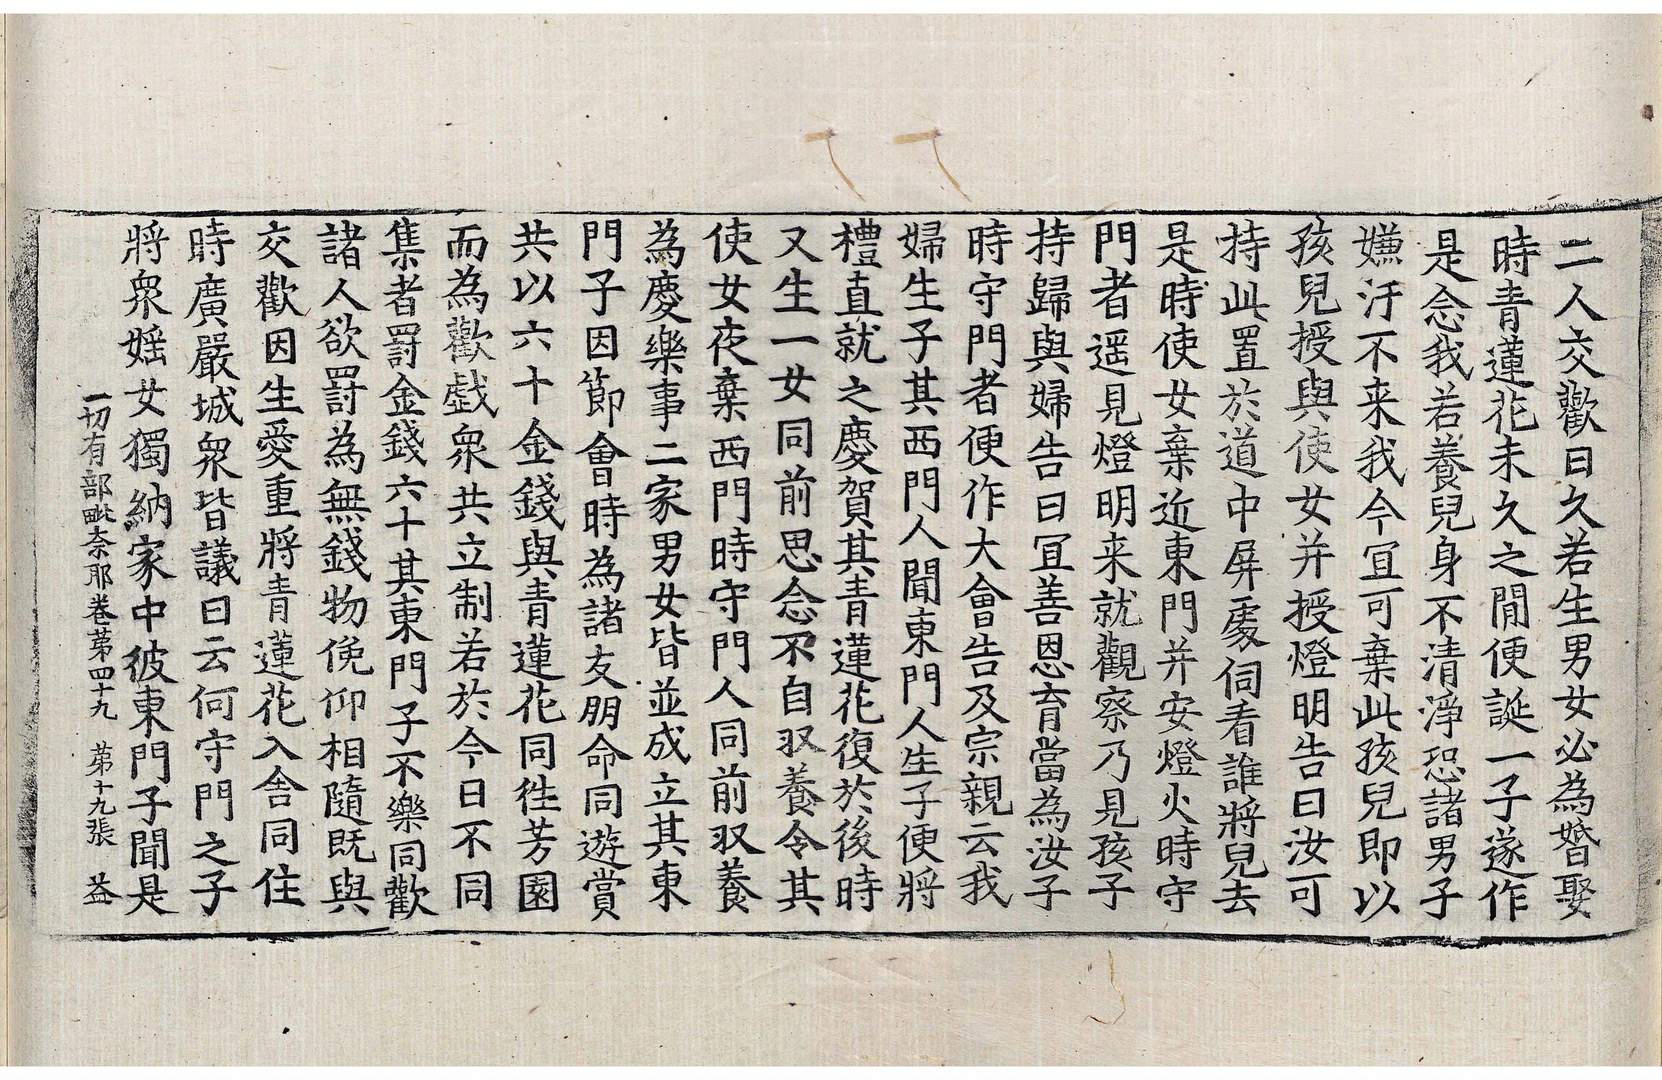 二人交歡曰久若生男女必為婚娶
時青蓮花未久之閒便誕一子遂作
是念我若養兒身不清淨恐諸男子
嫌汙不来我今冝可棄此孩兒即以
孩兒授與使女并授燈明告曰汝可
持此置於道中屏處伺看誰將兒去
是時使女棄近東門并安燈火時守
門者遥見燈明来就觀察乃見孩子
持歸與婦告曰冝善恩育當為汝子
時守門者便作大會告及宗親云我
婦生子其西門人聞東門人生子便將
禮直就之慶賀其青蓮花復於後時
又生一女同前思念不自収養令其
使女夜棄西門時守門人同前収養
為慶樂事二家男女皆並成立其東
門子因節會時為諸友朋命同遊賞
共以六十金錢與青蓮花同徃芳園
而為歡戱衆共立制若於今日不同
集者罰金錢六十其東門子不樂同歡
諸人欲罰為無錢物俛仰相隨既與
交歡因生愛重將青蓮花入舍同住
時廣嚴城衆皆議曰云何守門之子
將衆婬女獨納家中彼東門子聞是
一切有部毗奈耶卷苐四十九 苐十九張 益